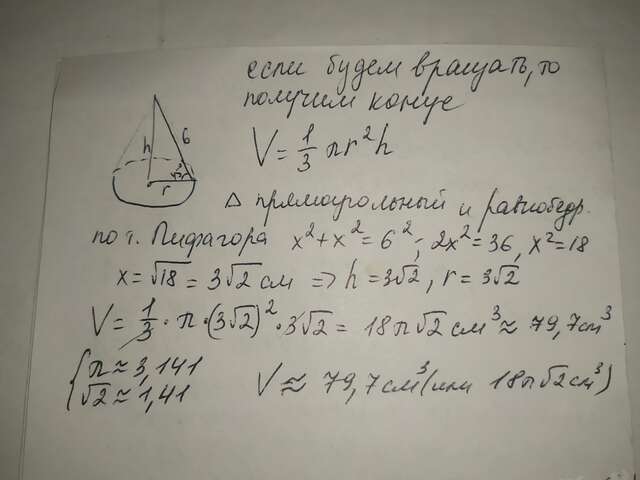 если будем вращать, то
получим конус
h 6 45° r
V = 1/3 πr²h
Δ прямоугольный и равнобедр.
по т. Пифагора x² + x² = 6²; 2x² = 36, x² = 18
x = √18 = 3√2 см => h = 3√2, r = 3√2
V = 1/3 · π · (3√2)² · 3√2 = 18π√2 см³ ≈ 79,7 см³
{ π ≈ 3,141
√2 ≈ 1,41
V ≈ 79,7 см³ (или 18π√2 см³)